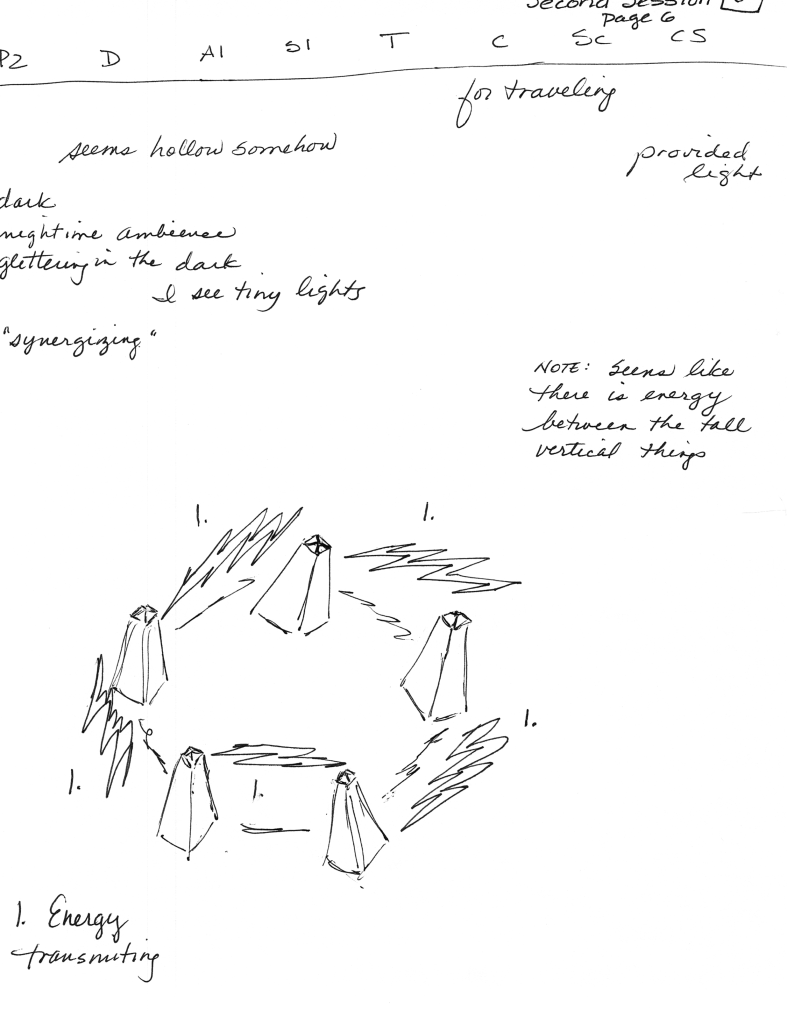 Second Session 6
page 6
P2 D AI SI T C Sc CS
for traveling
seems hollow somehow
provided
light
dark
nightime ambience
glettering in the dark
I see tiny lights
"synergizing"
NOTE: Seems like
there is energy
between the tall
vertical things
1.
1.
1.
1.
1.
1. Energy
transmuting